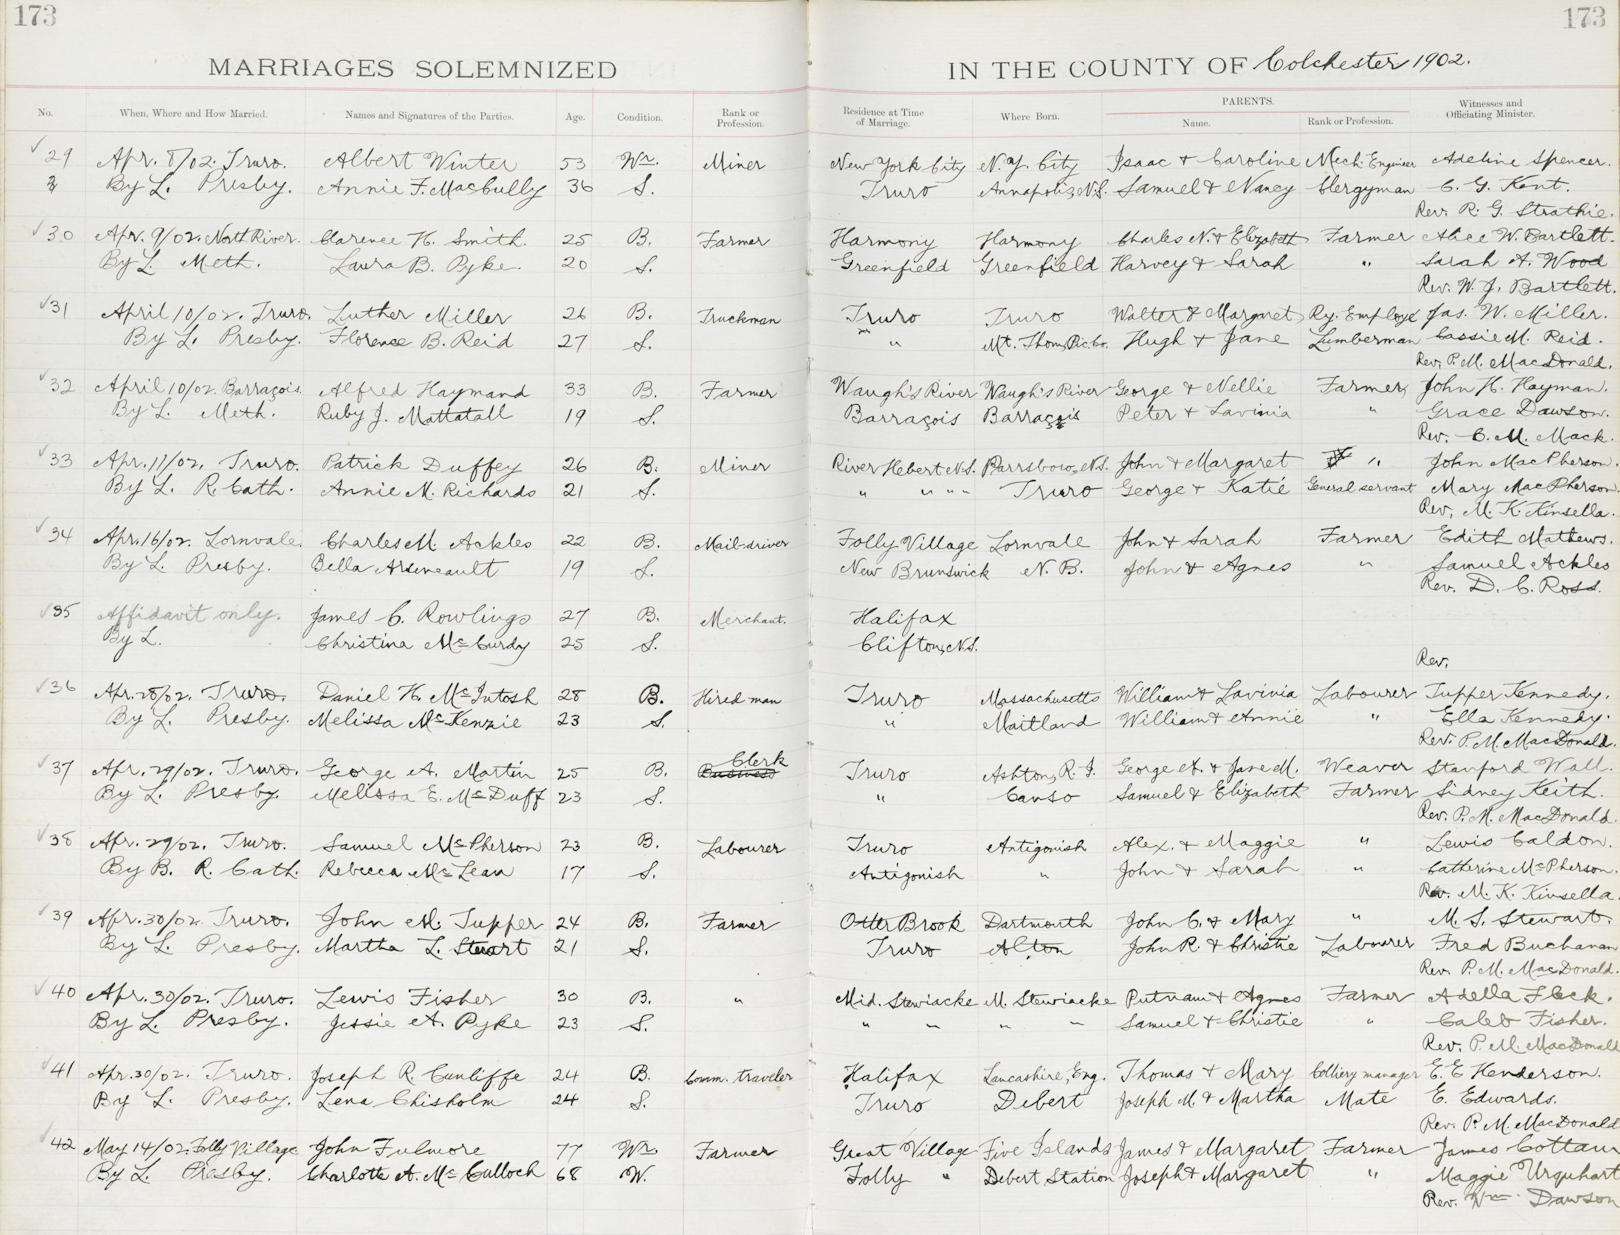 173
173
MARRIAGES SOLEMNIZED
IN THE COUNTY OF Colchester 1902.
No. When, Where and How Married. Names and Signatures of the Parties. Age. Condition. Rank or Profession. Residence at Time of Marriage. Where Born. PARENTS. Name. Rank or Profession. Witnesses and Officiating Minister.
29 Apr. 8/02. Truro. Albert Winter 53 Wr. Miner New York City N.Y. City Isaac & Caroline Mech. Engineer Adeline Spencer.
By L. Presby. Annie F. MacCully 36 S. Truro Annapolis, N.S. Samuel & Nancy Clergyman C. G. Kent.
Rev. R. G. Strathie.
30 Apr. 9/02. North River. Clarence H. Smith. 25 B. Farmer Harmony Harmony Charles N. & Elizabeth Farmer Alice W. Bartlett.
By L. Meth. Laura B. Pyke. 20 S. Greenfield Greenfield Harvey & Sarah " Sarah A. Wood
Rev. W. J. Bartlett.
31 April 10/02. Truro. Luther Miller 26 B. Truckman Truro Truro Walter & Margaret Ry. Employe Jas. W. Miller.
By L. Presby. Florence B. Reid 27 S. " Mt. Thom, Pic. Co. Hugh & Jane Lumberman Cassie M. Reid.
Rev. P. M. MacDonald.
32 April 10/02. Barraçois Alfred Haymand 33 B. Farmer Waugh's River Waugh's River George & Nellie Farmer, John H. Hayman.
By L. Meth. Ruby J. Mattatall 19 S. Barraçois Barraçois Peter & Lavinia " Grace Dawson.
Rev. C. M. Mack.
33 Apr. 11/02. Truro. Patrick Duffey 26 B. Miner River Hebert N.S. Parrsboro, N.S. John & Margaret " John MacPherson.
By L. R. Cath. Annie N. Richards 21 S. " " " " Truro George & Katie General servant Mary MacPherson.
Rev. M. K. Kinsella.
34 Apr. 16/02. Lornvale. Charles M. Ackles 22 B. Mail-driver Folly Village Lornvale John & Sarah Farmer Edith Mathews.
By L. Presby. Bella Arseneault 19 S. New Brunswick N. B. John & Agnes " Samuel Ackles
Rev. D. C. Ross.
35 Affidavit only. James C. Rowlings 27 B. Merchant. Halifax
By L. Christina McCurdy 25 S. Clifton, N.S.
Rev.
36 Apr. 28/02. Truro. Daniel H. McIntosh 28 B. Hired man Truro Massachusetts William & Lavinia Labourer Tupper Kennedy.
By L. Presby. Melissa McKenzie 23 S. " Maitland William & Annie " Ella Kennedy.
Rev. P. M. MacDonald.
37 Apr. 29/02. Truro. George A. Martin 25 B. Business Clerk Truro Ashton, R. I. George A. & Jane M. Weaver Stanford Wall.
By L. Presby. Melissa E. McDuff 23 S. " Canso Samuel & Elizabeth Farmer Sidney Keith.
Rev. P. M. MacDonald.
38 Apr. 29/02. Truro. Samuel McPherson 23 B. Labourer Truro Antigonish Alex. & Maggie " Lewis Caldon.
By B. R. Cath. Rebecca McLean 17 S. Antigonish " John & Sarah " Catherine McPherson.
Rev. M. K. Kinsella.
39 Apr. 30/02. Truro. John M. Tupper 24 B. Farmer Otter Brook Dartmouth John C. & Mary " M. S. Stewart.
By L. Presby. Martha L. Stewart 21 S. Truro Alton John R. & Christie Labourer Fred Buchanan
Rev. P. M. MacDonald.
40 Apr. 30/02. Truro. Lewis Fisher 30 B. " Mid. Stewiacke M. Stewiacke Putnam & Agnes Farmer Adella Fleck.
By L. Presby. Jessie A. Pyke 23 S. " " " " Samuel & Christie " Caleb Fisher.
Rev. P. M. MacDonald
41 Apr. 30/02. Truro. Joseph R. Cunliffe 24 B. Comm. traveler Halifax Lancashire, Eng. Thomas & Mary Colliery manager E. E Henderson.
By L. Presby. Lena Chisholm 24 S. Truro Debert Joseph M. & Martha Mate E. Edwards.
Rev. P. M. MacDonald
42 May 14/02. Folly Village John Fulmore 77 Wr. Farmer Great Village Five Islands James & Margaret Farmer James Cottam
By L. Presby. Charlotte A. McCulloch 68 W. Folly " Debert Station Joseph & Margaret " Maggie Urquhart
Rev. Wm. Dawson